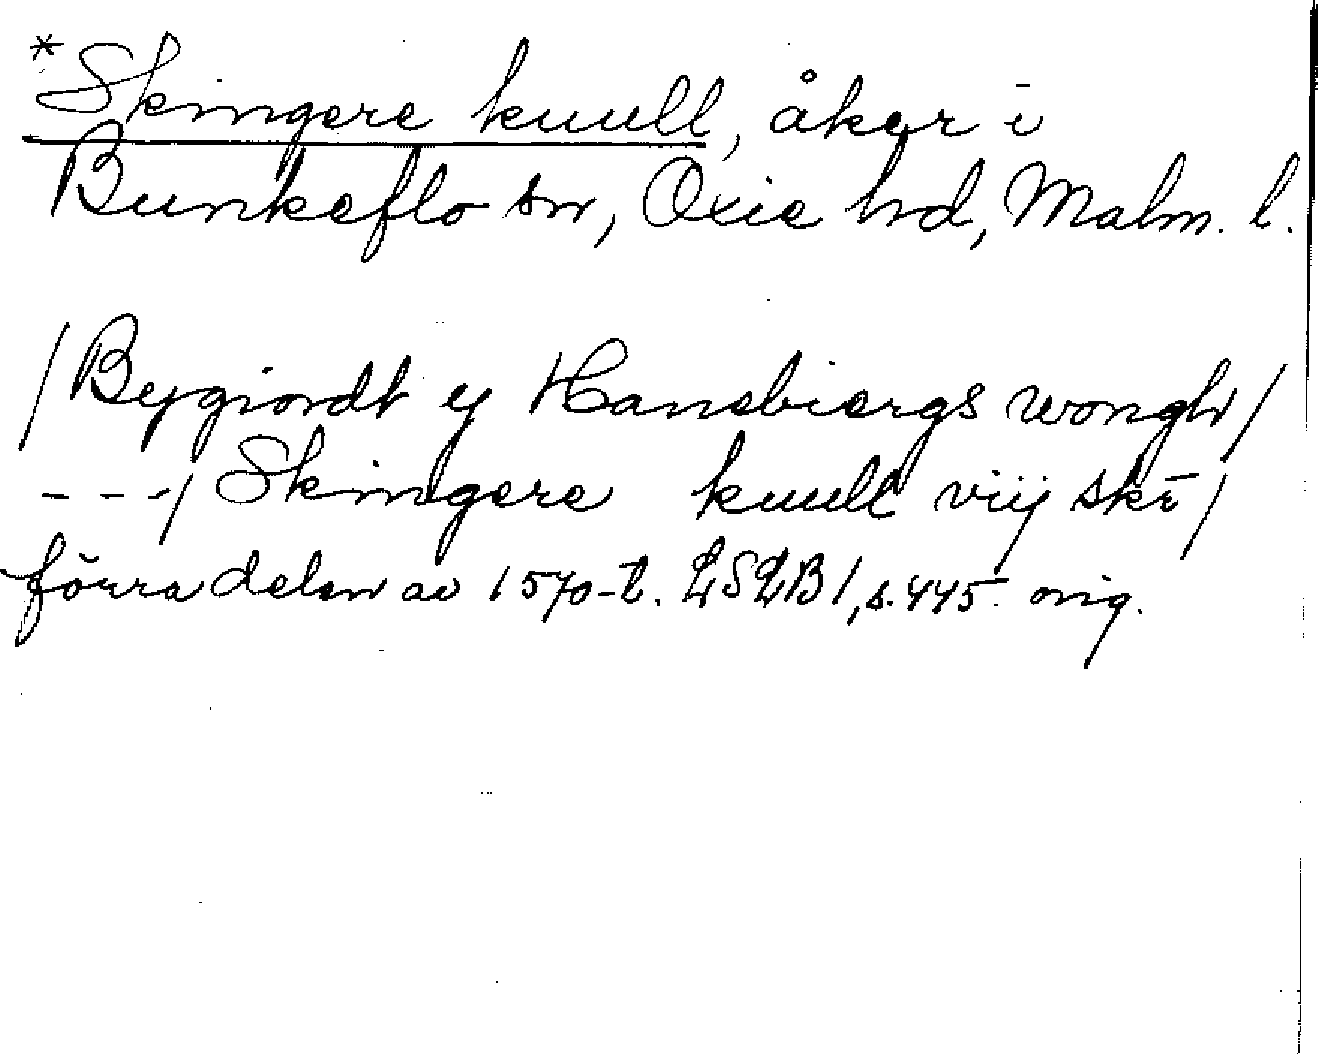 *Skingere kuull, åker i
Bunkeflo sn, Oxie hd, Malm. l.
/Bygiordt y Hansbiergs wongh/
---/Skingere kuull viij skr̄/
förra delen av 1570-t. LSLB 1, s. 445 orig.